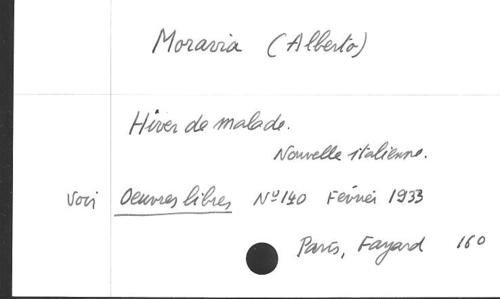 Moravia (Alberto)
Hiver de malade.
Nouvelle italienne.
Voir Oeuvres libres Nº 140 Février 1933
Paris, Fayard 160